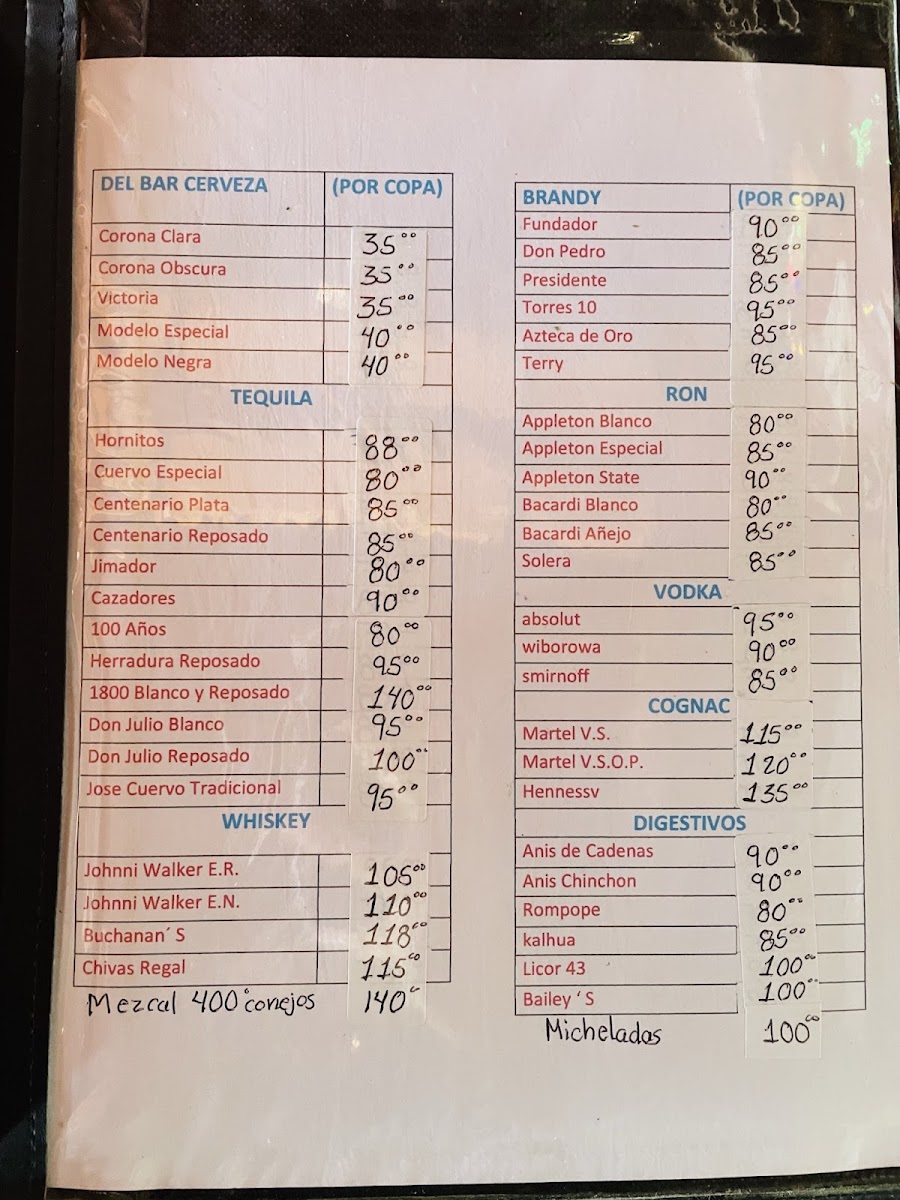 DEL BAR CERVEZA (POR COPA)
Corona Clara 35.00
Corona Obscura 35.00
Victoria 35.00
Modelo Especial 40.00
Modelo Negra 40.00
TEQUILA
Hornitos 88.00
Cuervo Especial 80.00
Centenario Plata 85.00
Centenario Reposado 85.00
Jimador 80.00
Cazadores 90.00
100 Años 80.00
Herradura Reposado 95.00
1800 Blanco y Reposado 140.00
Don Julio Blanco 95.00
Don Julio Reposado 100.00
Jose Cuervo Tradicional 95.00
WHISKEY
Johnni Walker E.R. 106.00
Johnni Walker E.N. 110.00
Buchanan´ S 118.00
Chivas Regal 115.00
Mezcal 400 conejos 140.00
BRANDY (POR COPA)
Fundador 90.00
Don Pedro 85.00
Presidente 85.00
Torres 10 95.00
Azteca de Oro 85.00
Terry 95.00
RON
Appleton Blanco 80.00
Appleton Especial 85.00
Appleton State 90.00
Bacardi Blanco 80.00
Bacardi Añejo 85.00
Solera 85.00
VODKA
absolut 95.00
wiborowa 90.00
smirnoff 85.00
COGNAC
Martel V.S. 115.00
Martel V.S.O.P. 120.00
Hennessv 135.00
DIGESTIVOS
Anis de Cadenas 90.00
Anis Chinchon 90.00
Rompope 80.00
kalhua 85.00
Licor 43 100.00
Bailey ´S 100.00
Micheladas 100.00